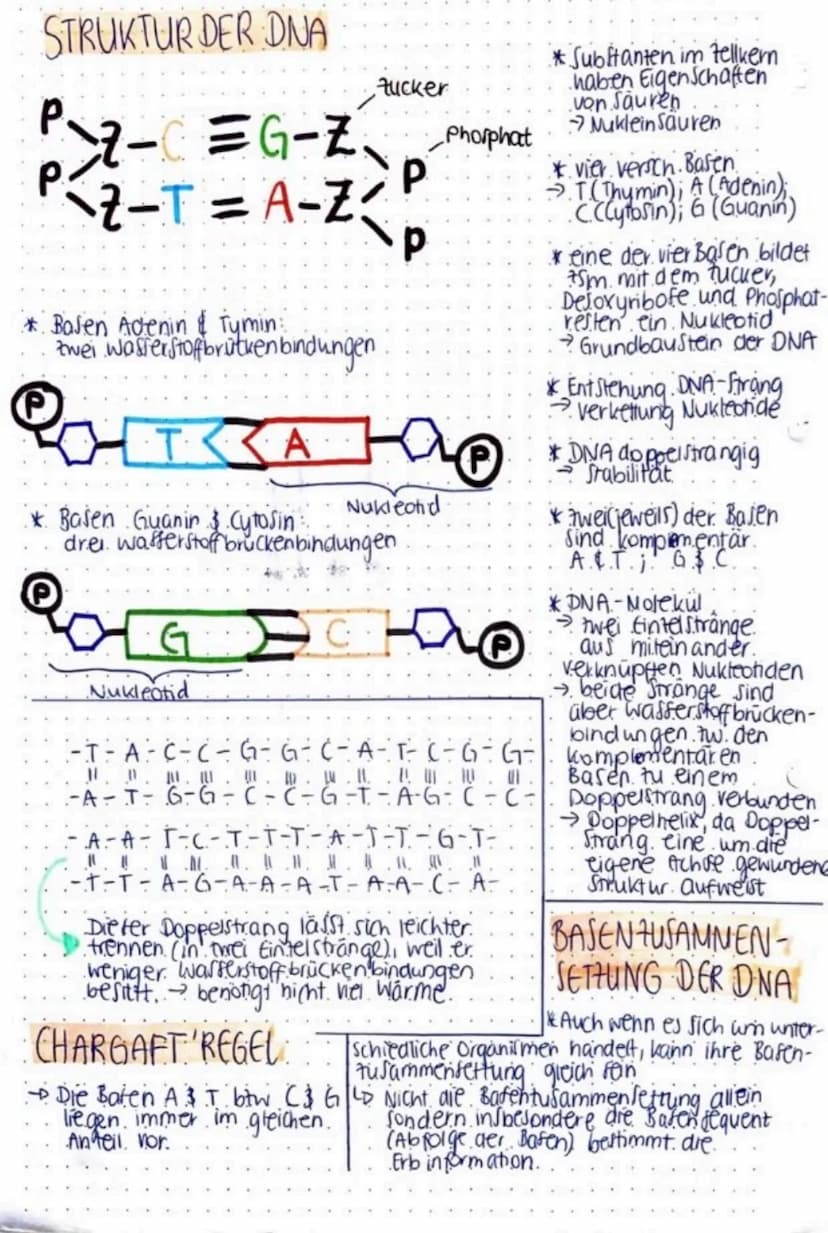 STRUKTUR DER DNA
P
Z - C ≡ G - Z
Zucker
P
Phosphat
P
Z - T = A - Z
P
* Basen Adenin & Tymin:
zwei Wasserstoffbrückenbindungen
P
T
A
P
Nukleotid
* Basen Guanin & Cytosin:
drei Wasserstoffbrückenbindungen
P
G
C
P
Nukleotid
-T-A-C-C-G-G-C-A-T-C-G-G-
= = ≡ ≡ ≡ ≡ ≡ = = ≡ ≡ ≡
-A-T-G-G-C-C-G-T-A-G-C-C-
-A-A-T-C-T-T-T-A-T-T-G-T-
= = = ≡ = = = = = = ≡ =
-T-T-A-G-A-A-A-T-A-A-C-A-
Dieser Doppelstrang lässt sich leichter
trennen (in zwei Einzelstränge), weil er
weniger Wasserstoffbrückenbindungen
besitzt. → benötigt nicht viel Wärme
CHARGAFT'REGEL
→ Die Basen A & T bzw C & G
liegen immer im gleichen
Anteil vor.
* Substanzen im Zellkern
haben Eigenschaften
von Säuren
→ Nukleinsäuren
* vier versch. Basen
→ T (Thymin); A (Adenin);
C (Cytosin); G (Guanin)
* eine der vier Basen bildet
zsm. mit dem Zucker,
Desoxyribose und Phosphat-
resten ein Nukleotid
→ Grundbaustein der DNA
* Entstehung DNA-Strang
→ Verkettung Nukleotide
* DNA doppelsträngig
→ Stabilität
* zwei (jeweils) der Basen
sind komplementär
A & T ; G & C
* DNA-Molekül
→ zwei Einzelstränge
aus miteinander
verknüpften Nukleotiden
→ beide Stränge sind
über Wasserstoffbrücken-
bindungen zw. den
komplementären
Basen zu einem
Doppelstrang verbunden
→ Doppelhelix, da Doppel-
strang eine um die
eigene Achse gewundene
Struktur aufweist
BASENZUSAMMEN-
SETZUNG DER DNA
* Auch wenn es sich um unter-
schiedliche Organismen handelt, kann ihre Basen-
zusammensetzung gleich sein
↳ Nicht die Basenzusammensetzung allein
sondern insbesondere die Basensequenz
(Abfolge der Basen) bestimmt die
Erbinformation.